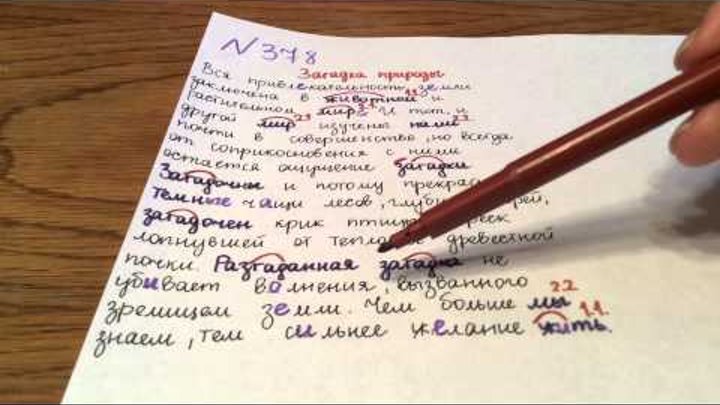 N378
Загадка природы
Вся привлекательность земли
заключена в животной 1.1. и
растительном мире 3.1. И тот, и
другой мир 2.1. изучены нами 2.2.
почти в совершенстве, но всегда
от соприкосновения с ними
остается ощущение загадки
Загадочны и потому прекрас
Темные чащи лесов, глуби рей,
загадочен крик птицы реск
лопнувшей от тепло древесной
почки. Разгаданная загадка не
убивает волнения, вызванного
зрелищем земли. Чем больше мы 2.2.
знаем, тем сильнее желание жить. 1.1.